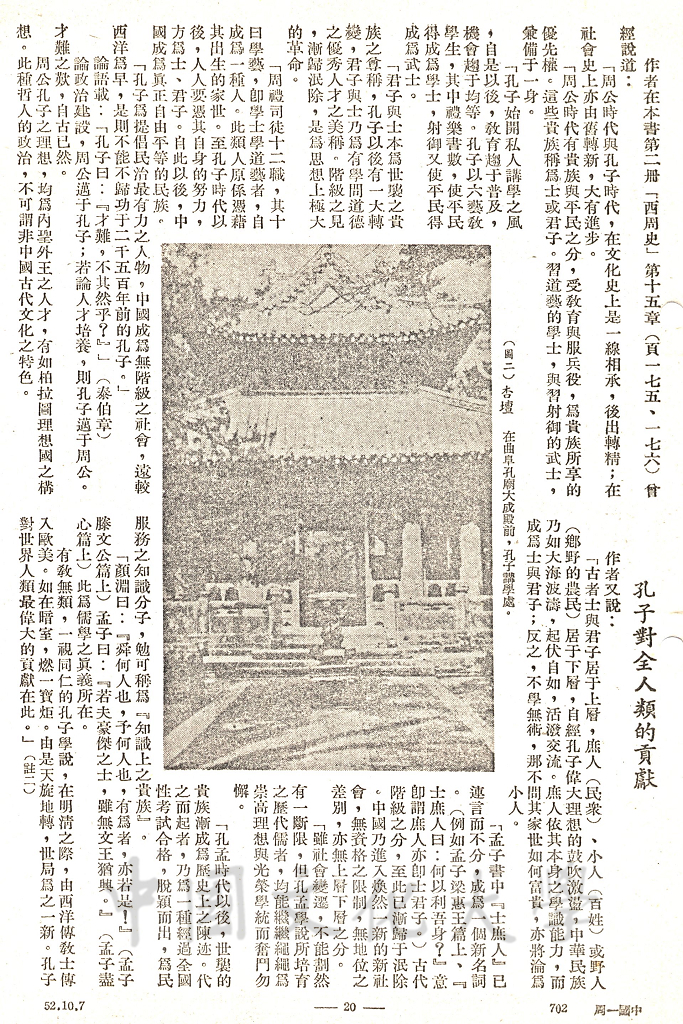 作者在本書第二册「西周史」第十五章（頁一七五、一七六）曾
經說道：
「周公時代與孔子時代，在文化史上是一線相承，後出轉精；在
社會史上亦由舊轉新，大有進步。
「周公時代有貴族與平民之分，受敎育與服兵役，爲貴族所享的
優先權。這些貴族稱爲士或君子。習道藝的學士，與習射御的武士，
彙備于一身。
「孔子始開私人講學之風
，自是以後，敎育趨于普及，
機會趨于均等。孔子以六藝敎
學生，其中禮樂書數，使平民
得成爲學士，射御又使平民得
成爲武士。
「君子與士本爲世襲之貴
族之尊稱，孔子以後有一大轉
變，君子與士乃爲有學問道德
之優秀人才之美稱。階級之見
，漸歸泯除，是爲思想上極大
的革命。
「周禮司徒十二職，其十
曰學藝，卽學士學道藝者，自
成爲一種人。此類人原係憑藉
其出生的家世。至孔子時代以
後，人人要憑其自身的努力，
方爲士、君子。自此以後，中
國成爲眞正自由平等的民族。
「孔子爲提倡民治最有力之人物，中國成爲無階級之社會，遠較
西洋爲早，是則不能不歸功于二千五百年前的孔子。」
論語載：「孔子曰：『才難，不其然乎？』」（泰伯章）
論政治建設，周公邁于孔子；若論人才培養，則孔子邁于周公。
才難之歎，自古已然。
周公孔子之理想，均爲內聖外王之人才，有如柏拉圖理想國之構
想。此種哲人的政治，不可謂非中國古代文化之特色。
（圖二）杏壇　在曲阜孔廟大成殿前，孔子講學處。
孔子對全人類的貢獻
作者又說：
「古者士與君子居于上層，庶人（民衆）、小人（百姓）或野人
（鄉野的農民）居于下層，自經孔子偉大理想的鼓激盪，中華民族
乃如大海波濤，起伏自如，活潑交流。庶人依其本身之學識能力，而
成爲士與君子；反之，不學無術，那不問其家世如何富貴，亦將淪爲
小人。
「孟子書中『士庶人』已
連言而不分，成爲一個新名詞
。（例如孟子梁惠王篇上、『
士庶人曰：何以利吾身？』意
卽謂庶人亦卽士君子）古代
階級之分，至此已漸歸于泯除
。中國乃進入煥然一新的新社
會，無資格之限制，無地位之
差別，亦無上層下層之分。
「雖社會變遷，不能劃然
有一斷限，但孔孟學說所培育
之歷代儒者，均能繼繼繩繩爲
崇高理想與光榮學統而奮鬥勿
懈。
「孔孟時代以後，世襲的
貴族漸成爲歷史上之陳迹。代
之而起者，乃爲一種經過全國
性考試合格，脫穎而出，爲民
服務之知識分子，勉可稱爲『知識上之貴族』。
「顏淵曰：『舜何人也，予何人也，有爲者，亦若是！』（孟子
滕文公篇上）孟子曰：『若夫豪傑之士，雖無文王猶興。』（孟子盡
心篇上）此爲儒學之眞義所在。
有敎無類，一視同仁的孔子學說，在明清之際，由西洋傳敎士傳
入歐美。如在暗室，燃一寶炬。由是天旋地轉，世局爲之一新。孔子
對世界人類最偉大的貢獻在此。」（註二）
52.10.7
— 20 —
702　周一國中